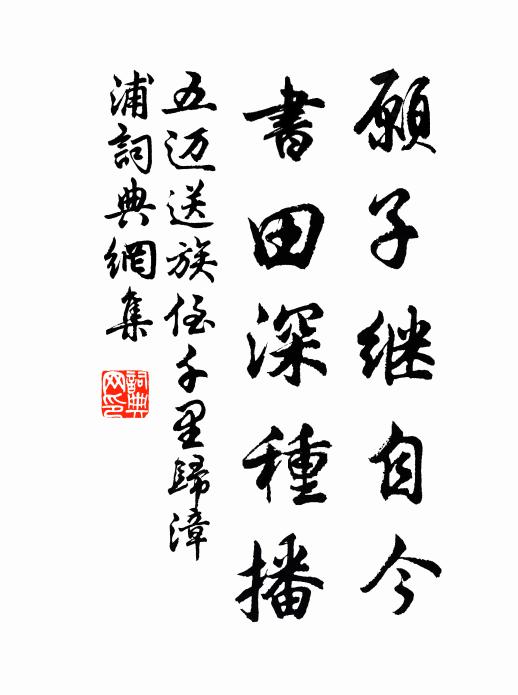 願子继自今
書田深種播
五迈送族侄千里歸漳
浦詞典網集
詞典网印